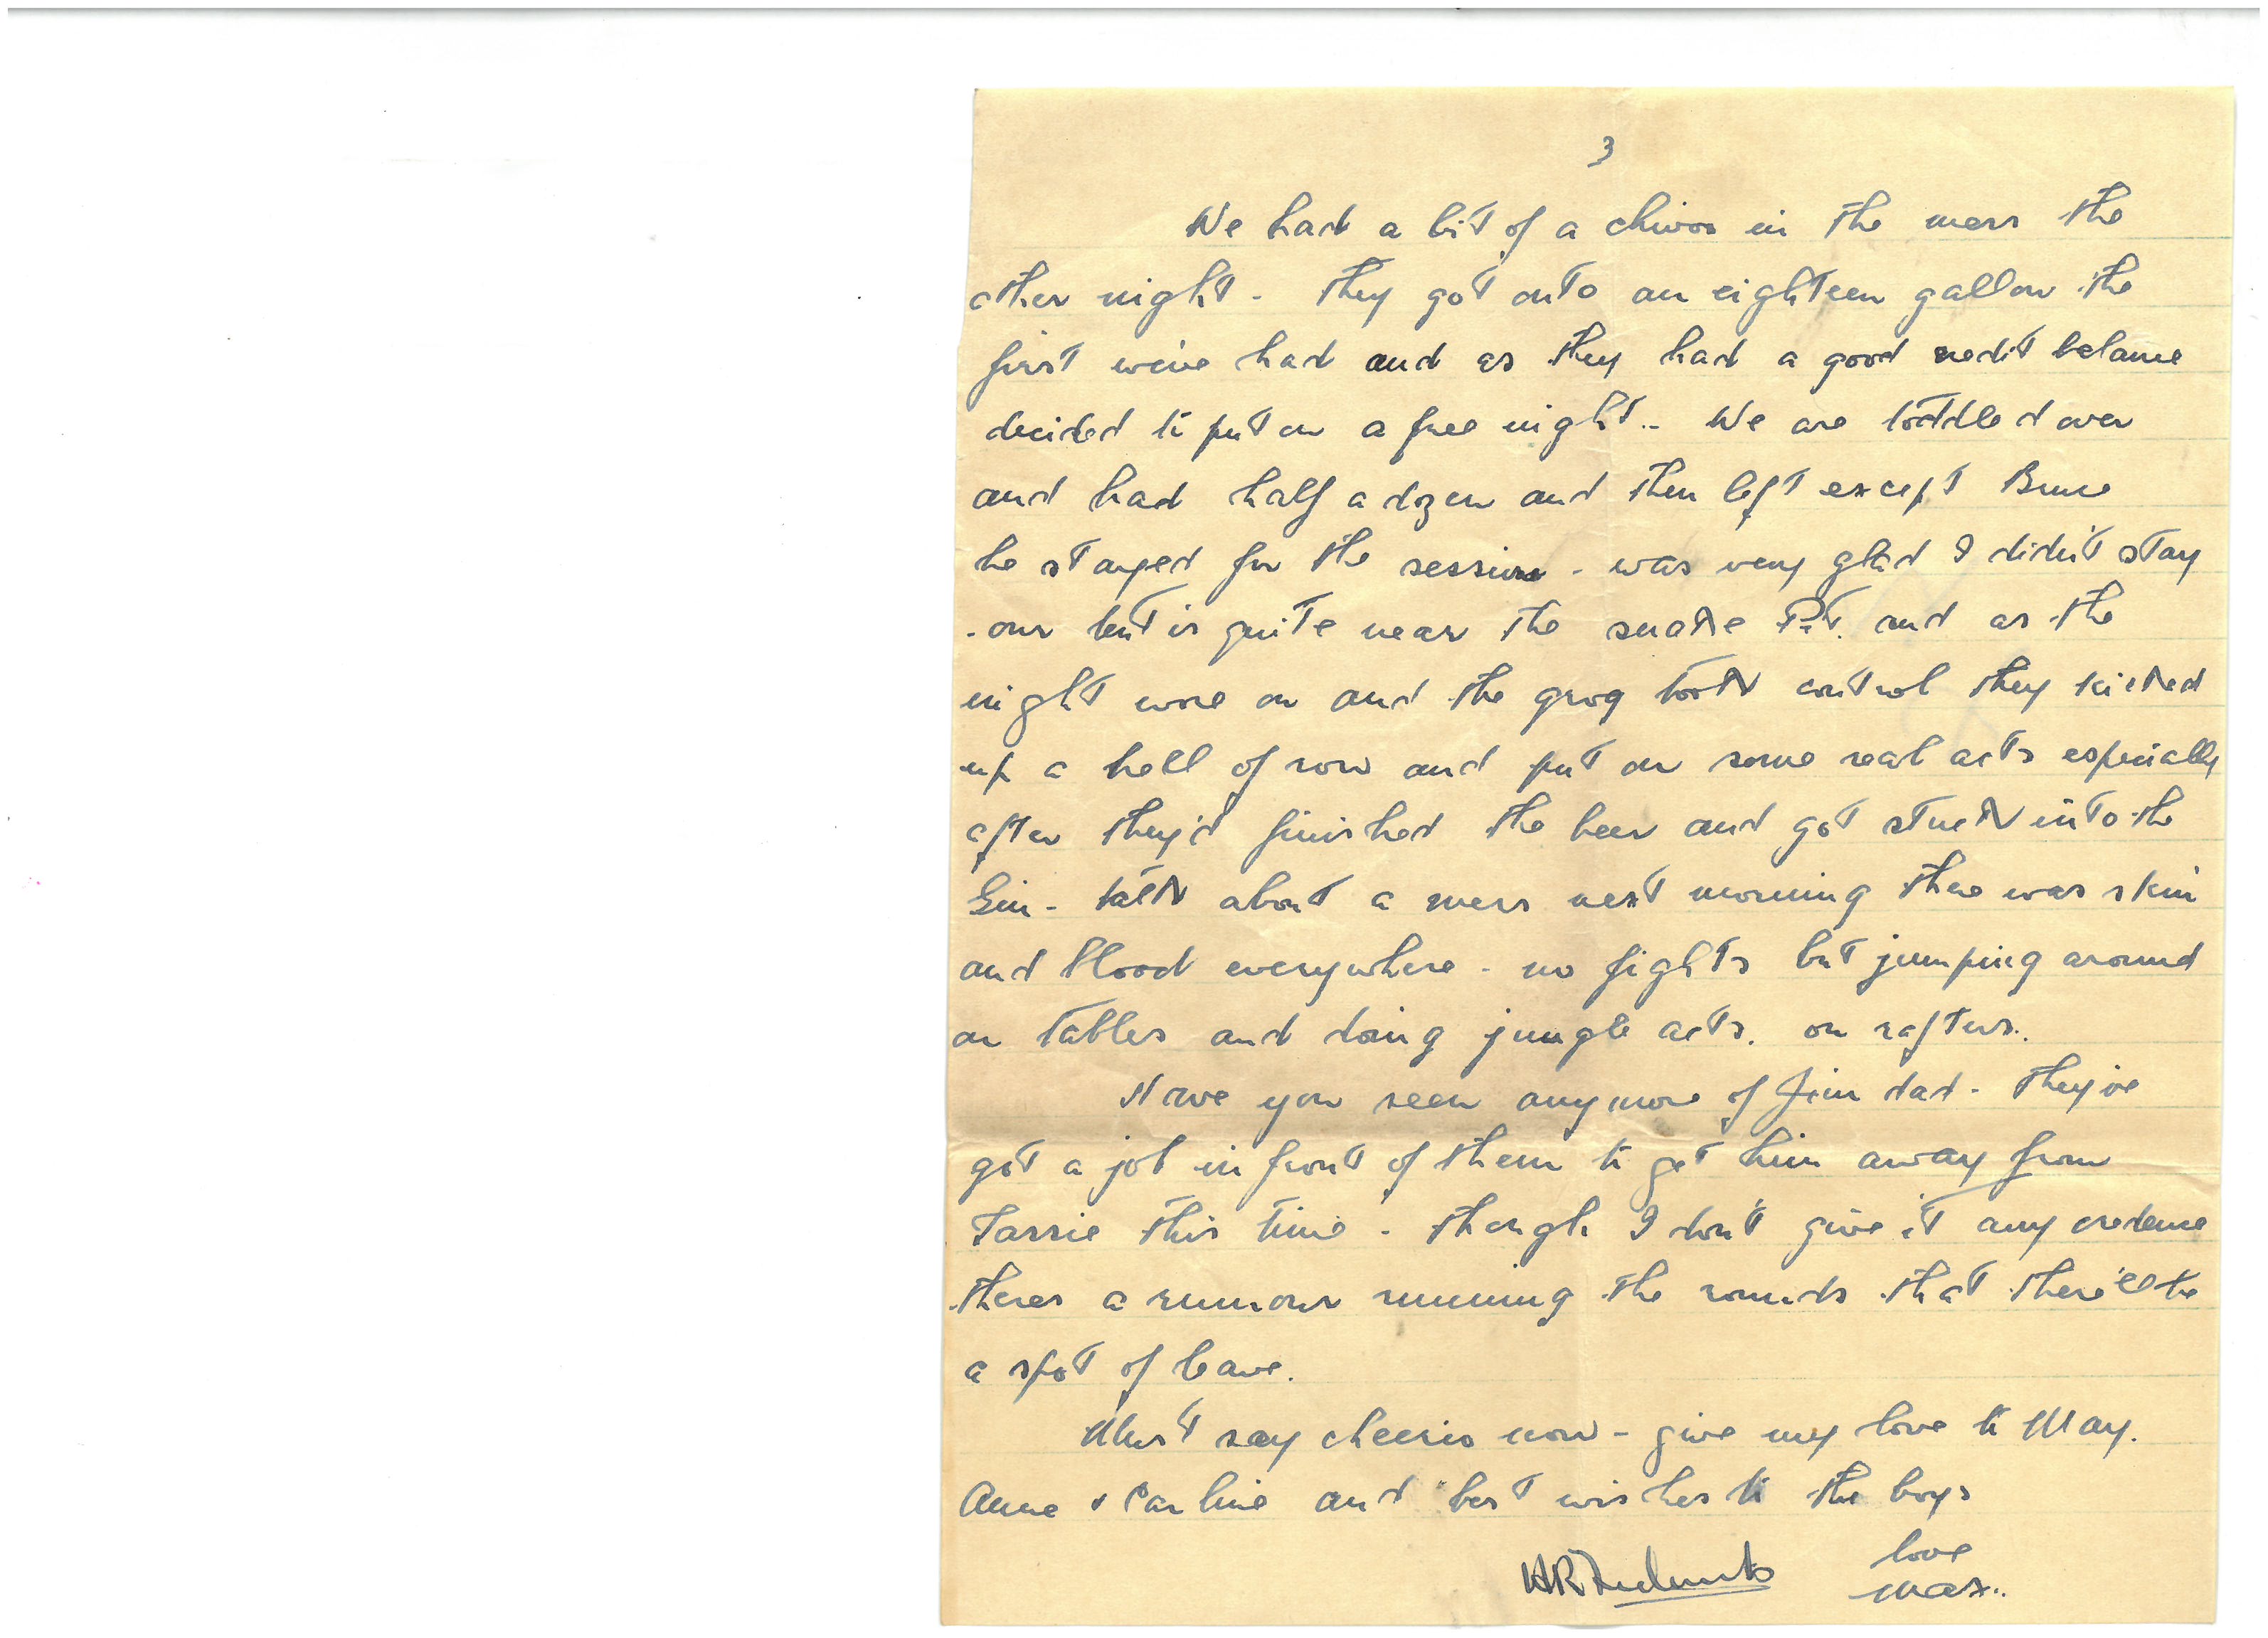 3
We had a bit of a chivoo in the mess the
other night - they got onto an eighteen gallon the
first we've had and as they had a good credit balance
decided to put on a free night.. We are toddled over
and had half a dozen and then left except Bruce
he stayed for the session - was very glad I didn't stay
- our tent is quite near the snake Pit. and as the
night wore on and the grog took control they kicked
up a hell of row and put on some real acts especially
after they'd finished the beer and got stuck into the
Gin - talk about a mess next morning there was skin
and blood everywhere - no fights but jumping around
on tables and doing jungle acts. on rafters.
Have you seen anymore of Jim dad - they've
got a job in front of them to get him away from
Tassie this time - though I don't give it any credence
theres a rumour running the rounds that there'll be
a spot of leave.
Must say cheerio now - give my love to May.
Anne & and best wishes to the boys
love
Max..